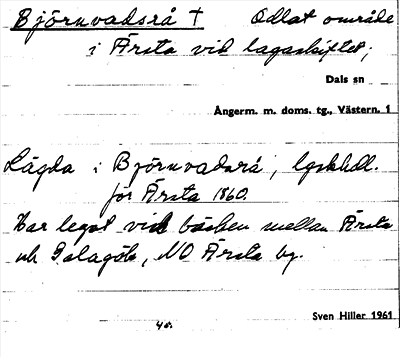 Björnvadsrå † Odlat område
i Ärsta vid lagaskiftet;
Dals sn
Ångerm. m. doms. tg., Västern. 1
Lägda i Björnvadsrå, lgskhdl.
för Ärsta 1860.
Har legat vid bäcken mellan Ärsta
och, NO Ärsta by.
Sven Hiller 1961